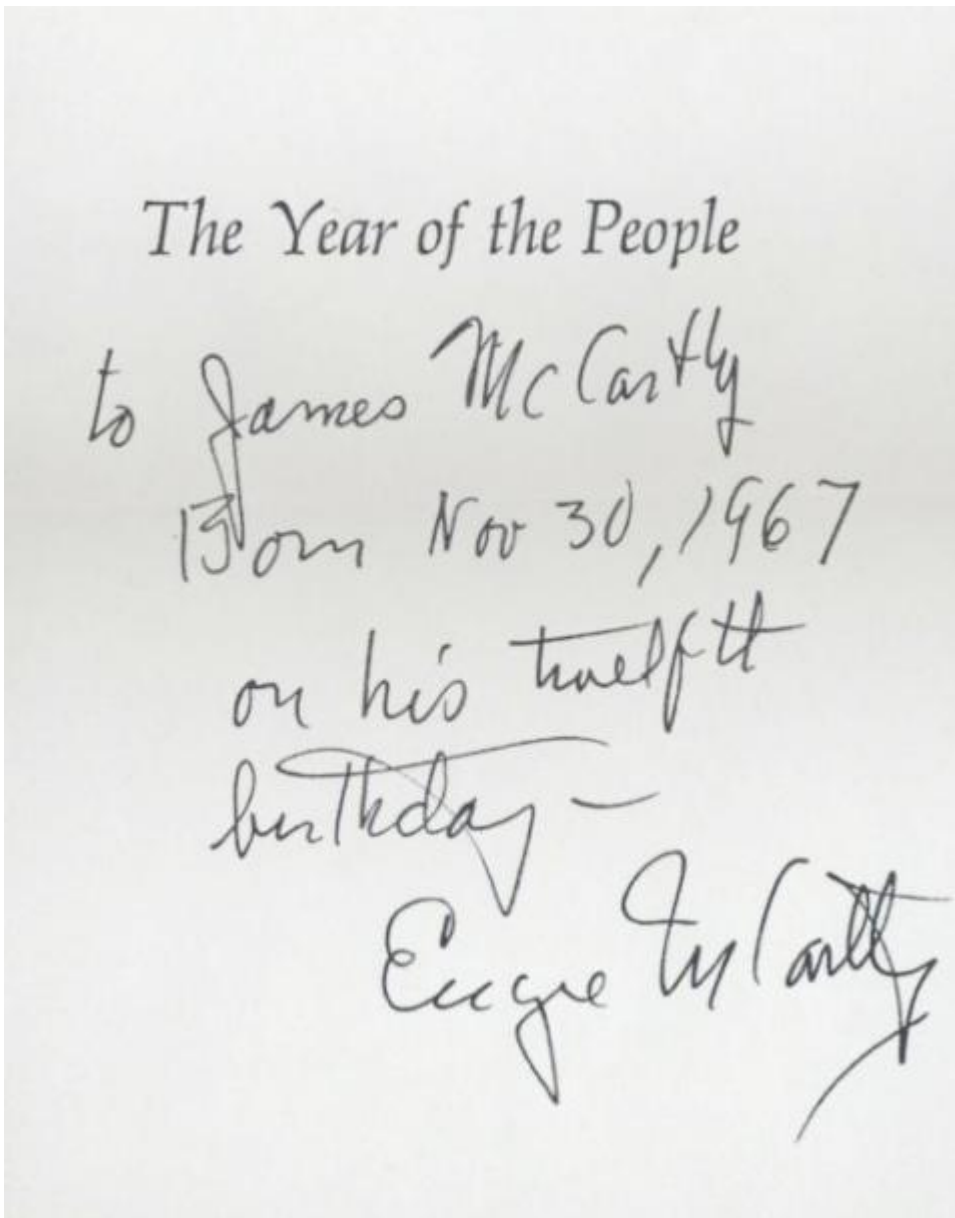 The Year of the People
to James McCarthy
Born Nov 30, 1967
on his twelfth
birthday —
Eugene McCarthy